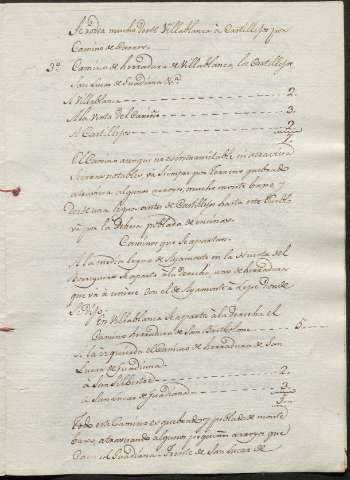 Se rodea mucho desde Villablanca à Castillejos por
Camino de
3º Camino de herradura de Villablanca, la Castilleja
San Lucar de Guadiana &ª
A Villablanca 2.
A la Venta del 3.
A Castillejos 2.
7
El Camino aunque no es atraviesa
Sierras notables, va siempre por terreno quebrado
atraviesa algunos arroyos, mucho monte bajo y
desde una legua antes de Castillejos hasta este Pueblo
vá por la poblada de encinas.
Caminos que se apartan.
A la media legua de Ayamonte en la Cuesta del
se aparta à la derecha uno de herradura
que và à unirse con el de Ayamonte à Lepe donde
Se dijo.
En Villablanca se aparta à la derecha el
Camino herradura de San Bartholome 5.
Si la izquierda el Camino de herradura de San
Lucar de Guadiana.
à San Silbestre 2.
à San Lucar de Guadiana 3.
5.
Todo este Camino es quebrado y poblado de monte
bajo, atravesando algunos pequeños arroyos que
Caen al Guadiana. Frente de San Lucar de